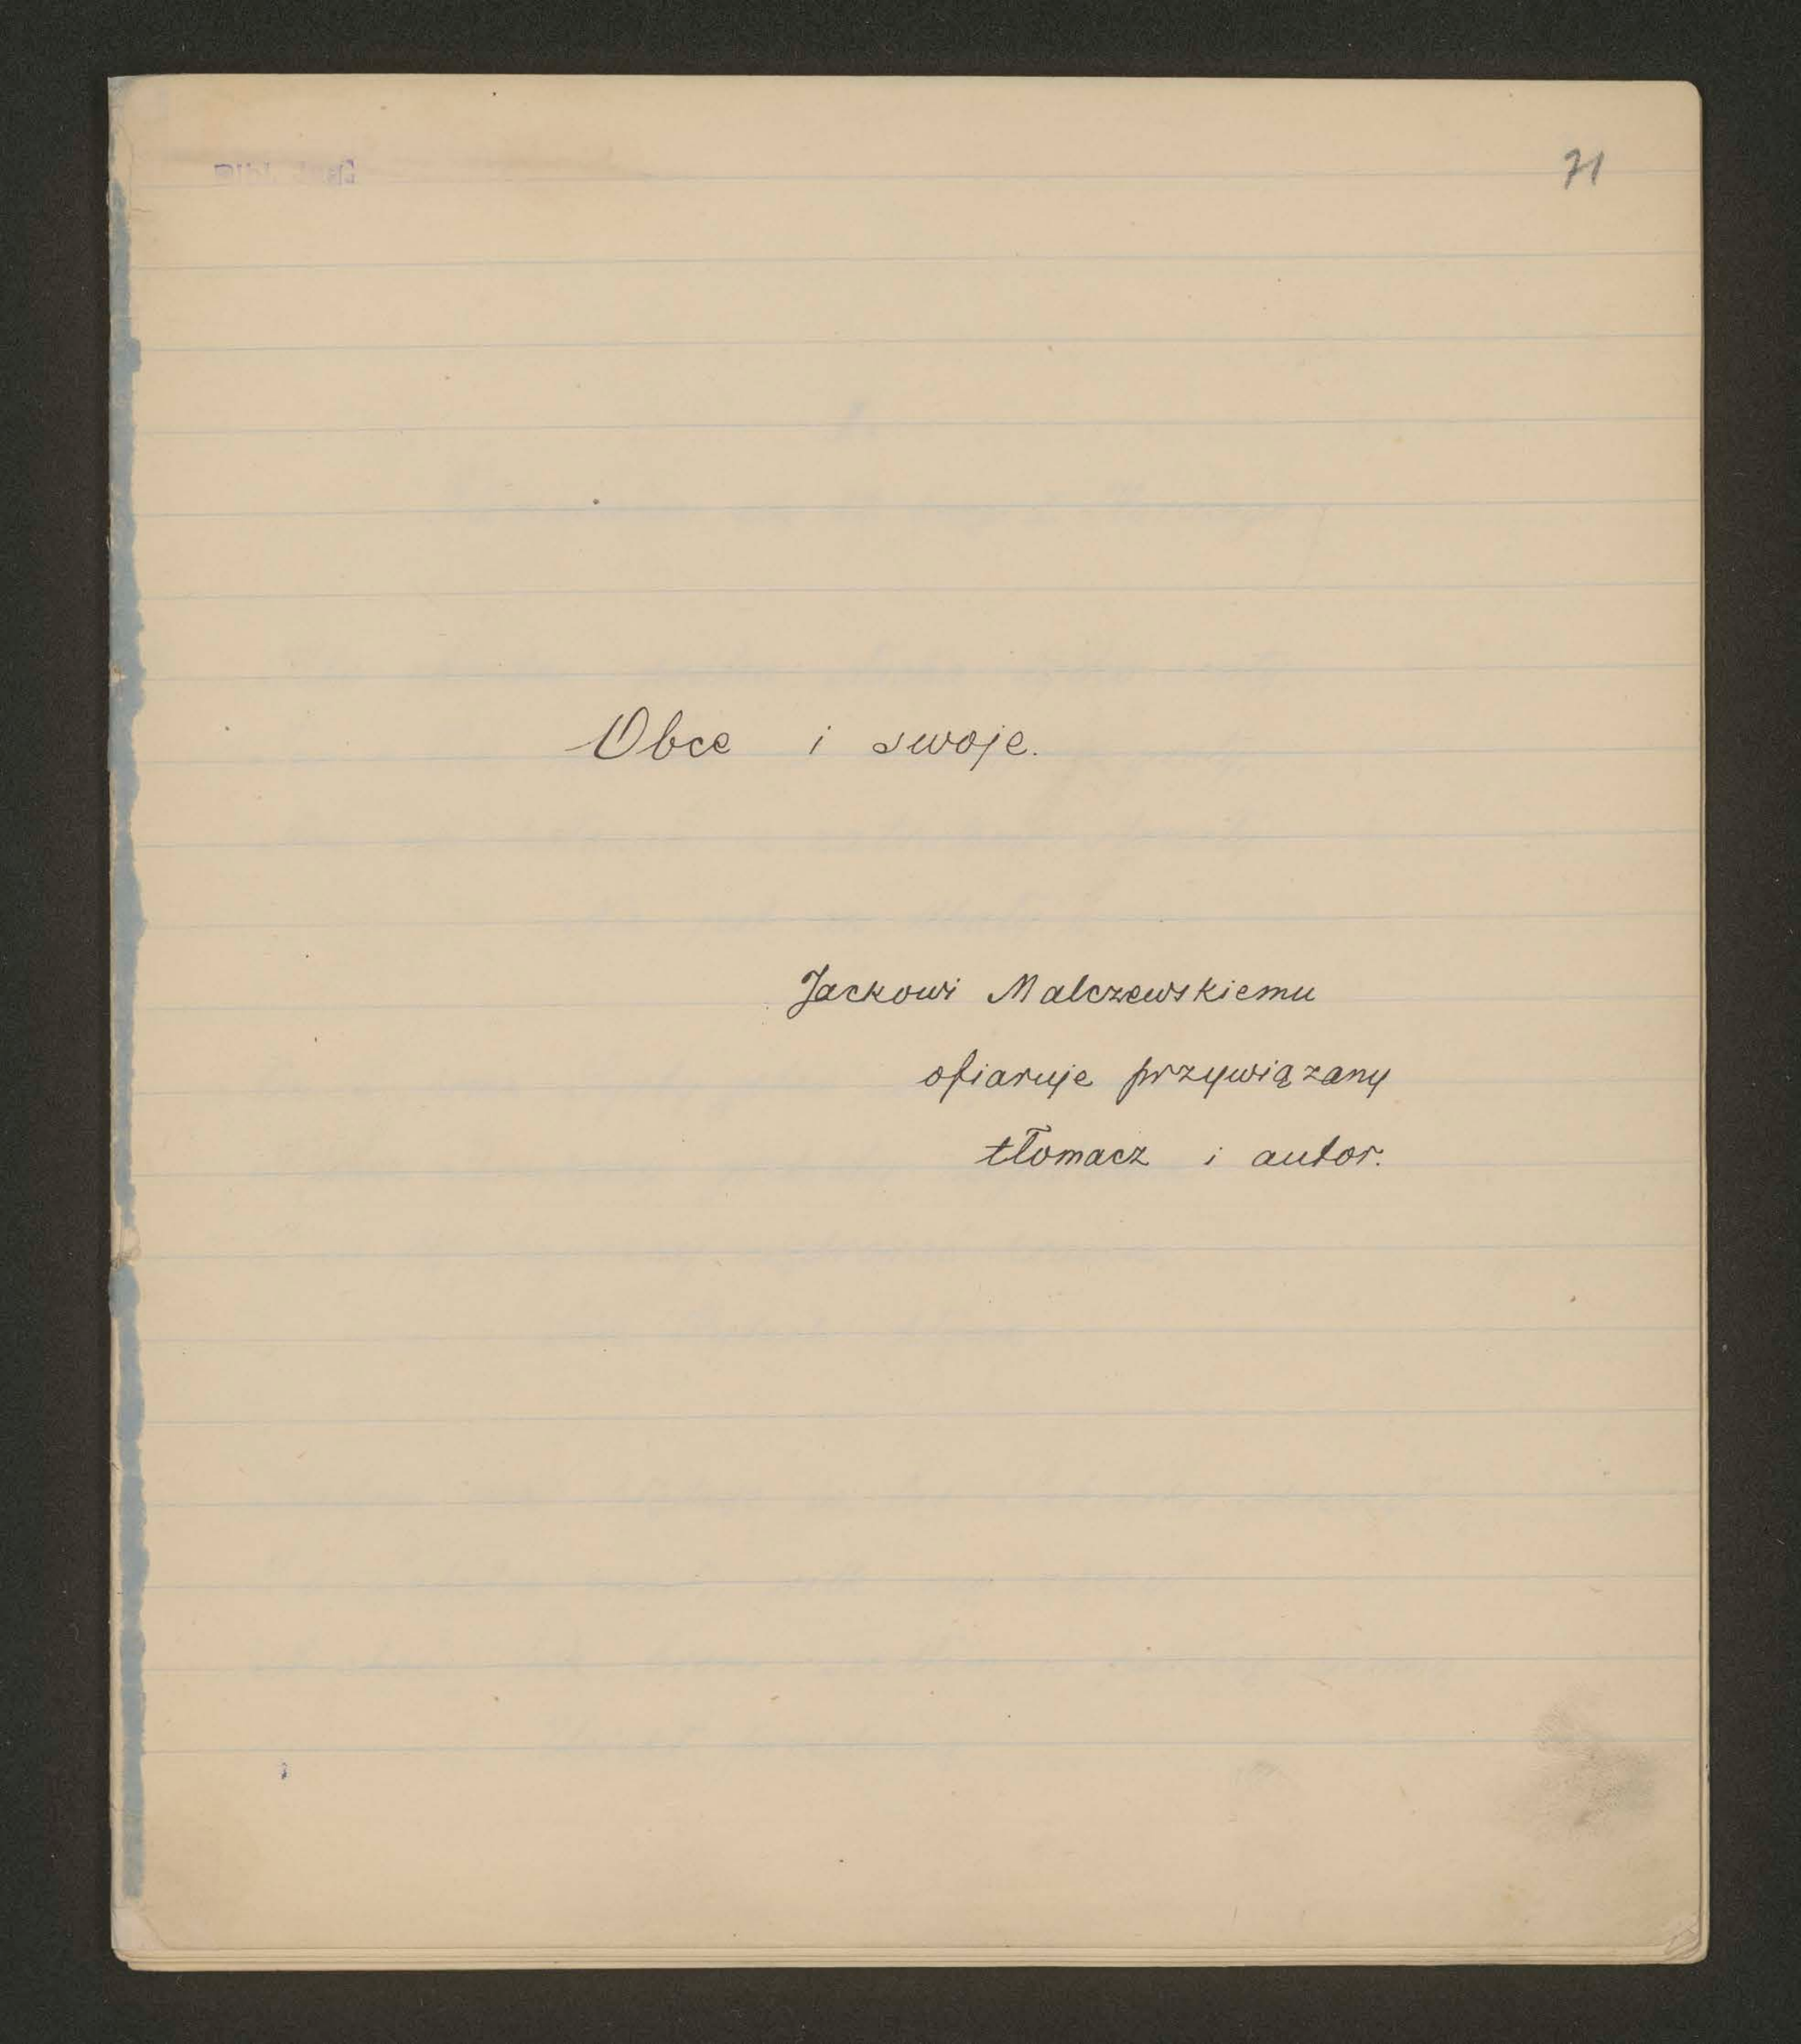 71
Obce i swoje.
Jackowi Malczewskiemu
ofiaruje przywiązany
tłomacz i autor.